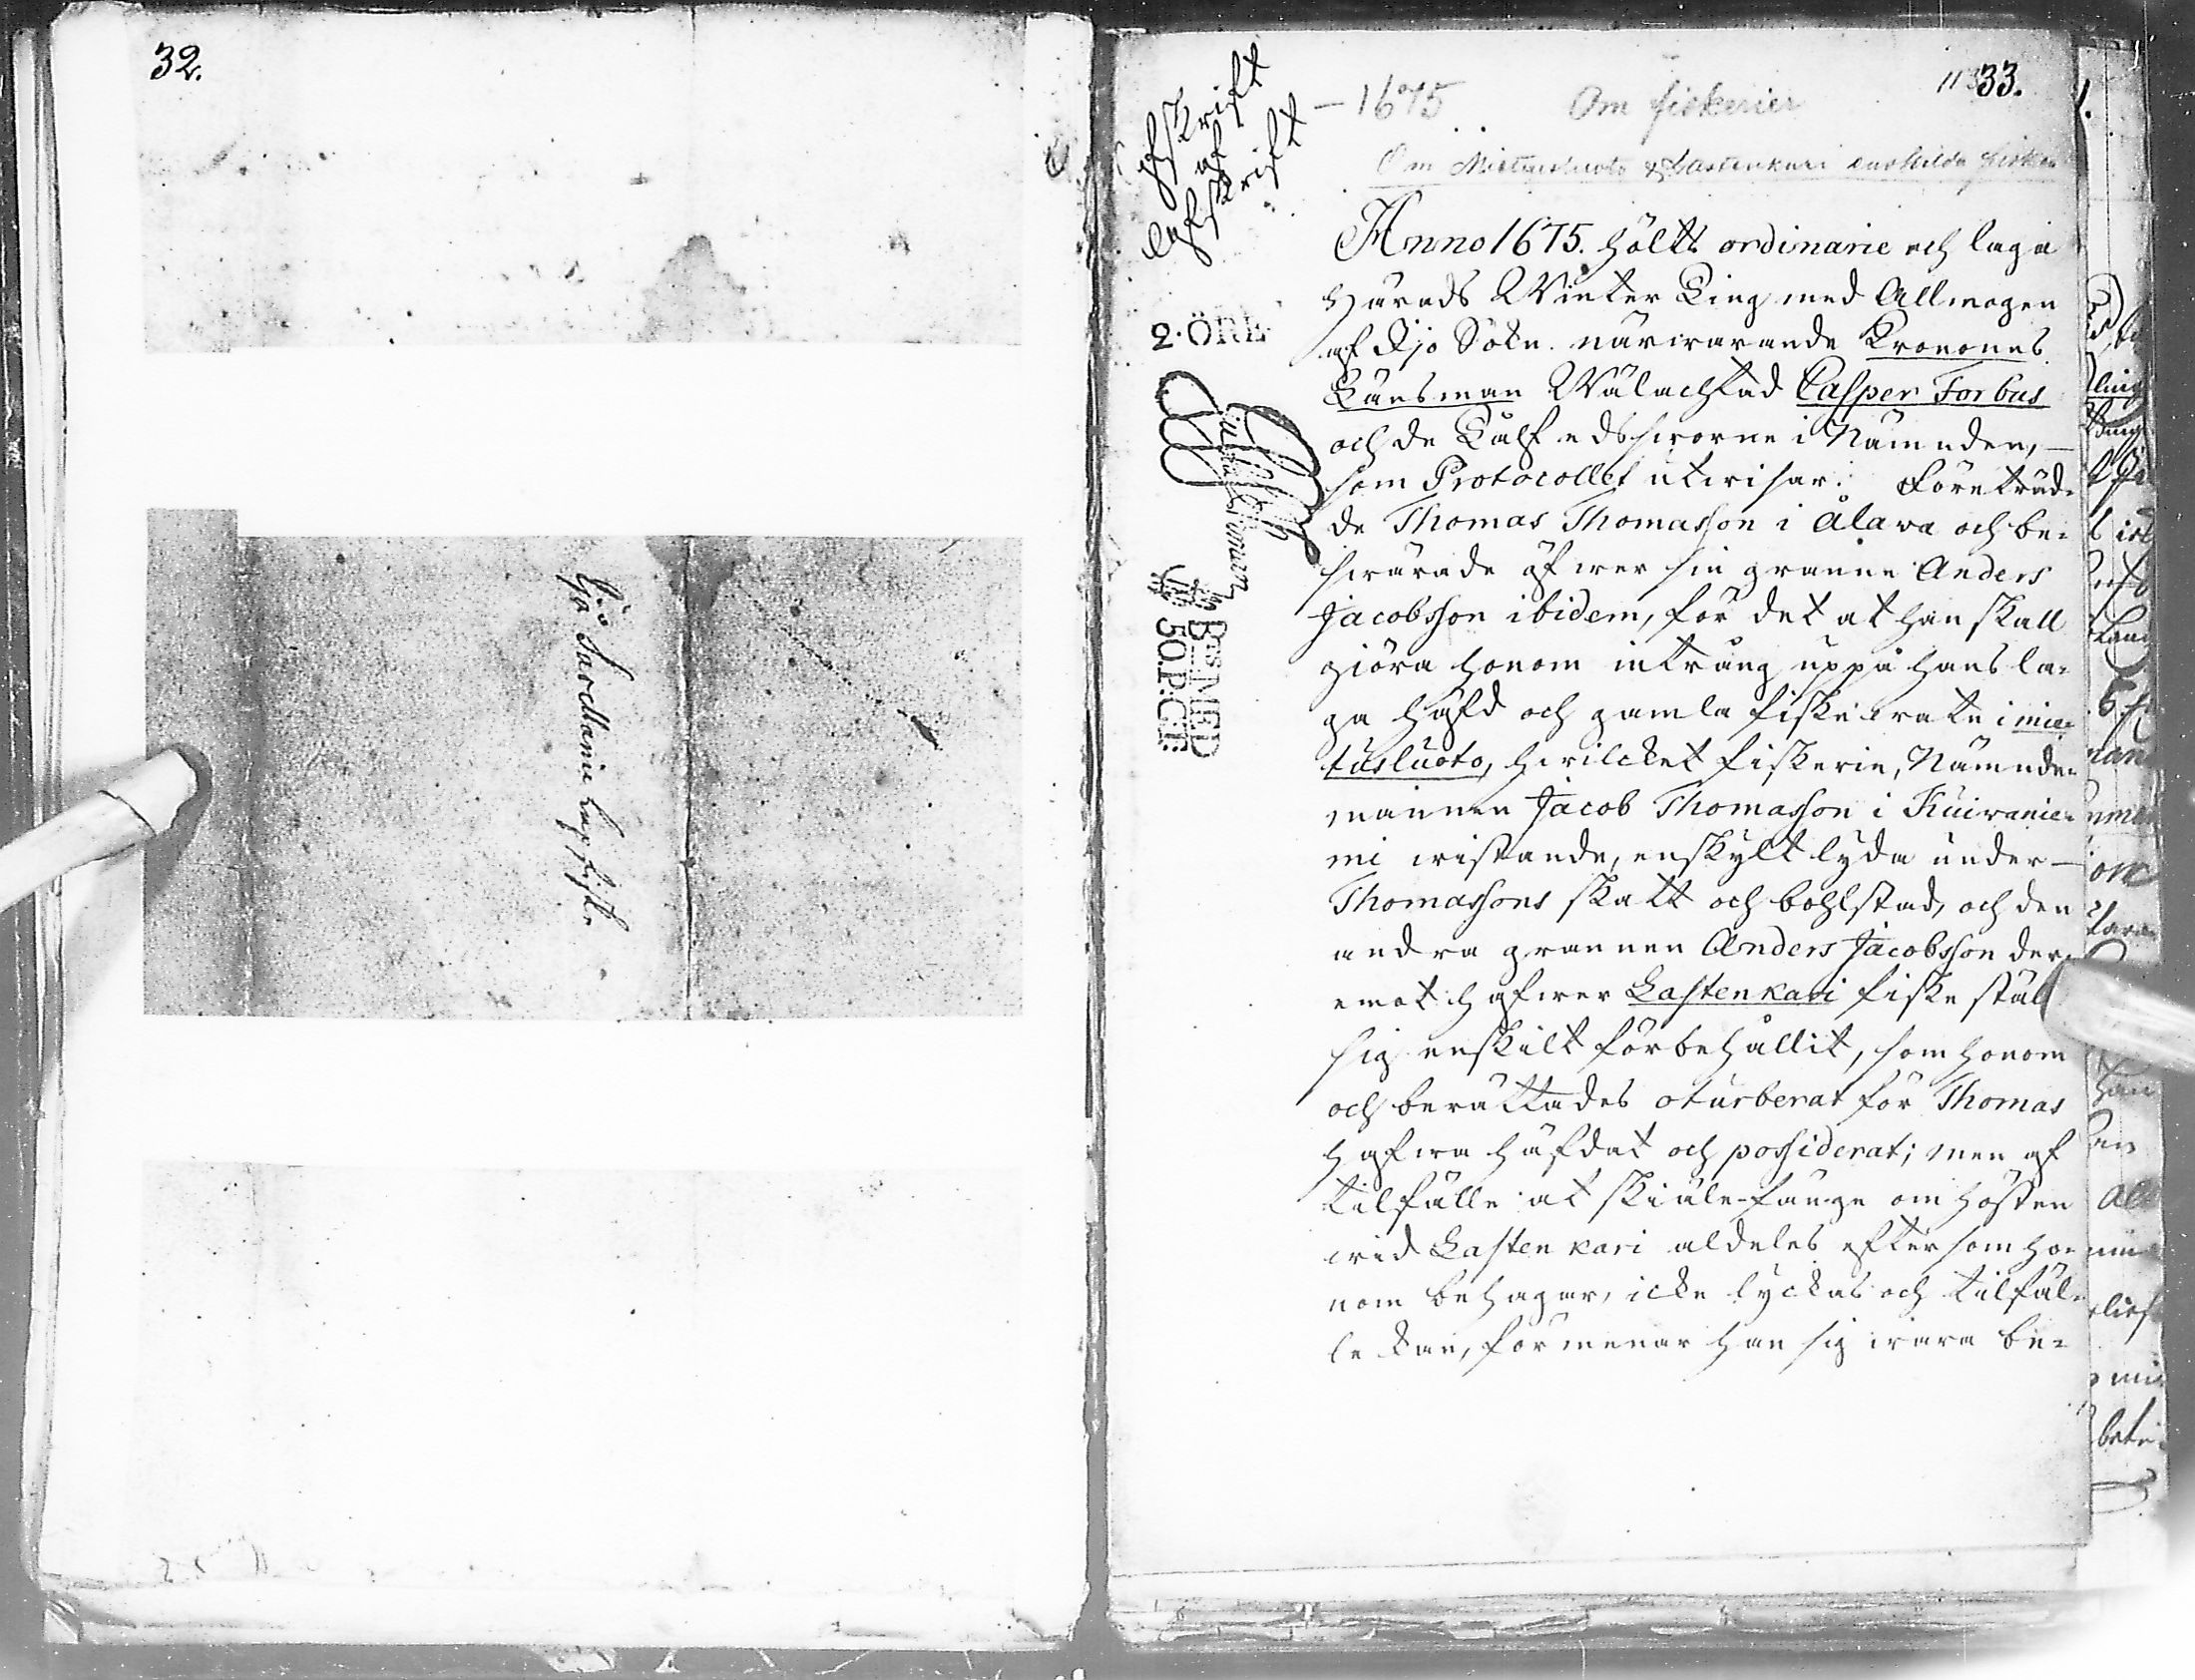 32.
Ijo Sardkanu Lax fiske
33.
Afskrift
af
Afskrift
— 1675 Om fiskerier
Om Mietusluoto & Lastenkari enskilda fisken
2. ÖRE
50. P: CT:
Anno 1675. hölts ordinarie och laga
Härads Winter Ting med Allmogen
af Ijo Sokn. närwarande Kronones
Länsman Wälachtad Casper Forbus
och de Tålf edsworne i Nämnden, —
som Protocollet utwisar. Företräd-
de Thomas Thomasson i Alawa och be-
swärade öfwer sin granne Anders
Jacobsson ibidem, för det at han skall
giöra honom intrång uppå hans la-
ga häfd och gamla fiske wate i mie-
tusluoto, hwilcket fiskerie, Nämnde-
mannen Jacob Thomasson i Kuiwanie-
mi wistande, enskylt lyda under —
Thomassons skatt och bohlstad, och den
andra grannen Anders Jacobsson der-
emot hafwer Lastenkari fiske stäl
sig enskilt förbehållit, som honom
och berättades oturberat för Thomas
hafwa häfdat och possiderat; men af
tilfälle at skiäle-fånge om hösten
wid Lasten kari aldeles eftersom ho-
nom behagar, icke lyckas och tilfäl-
le kan, förmenar han sig wara be-